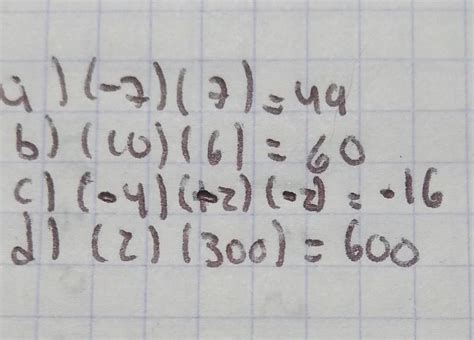 a) (-7)(7)=49
b) (10)(6)=60
c) (-4)(-2)(-2)=-16
d) (2)(300)=600